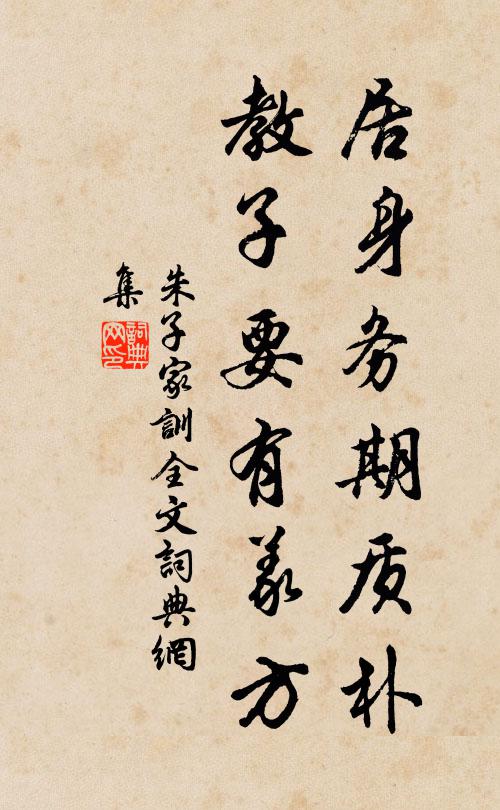 居身务期质朴
教子要有义方
朱子家訓全文詞典網
集
詞典
网印